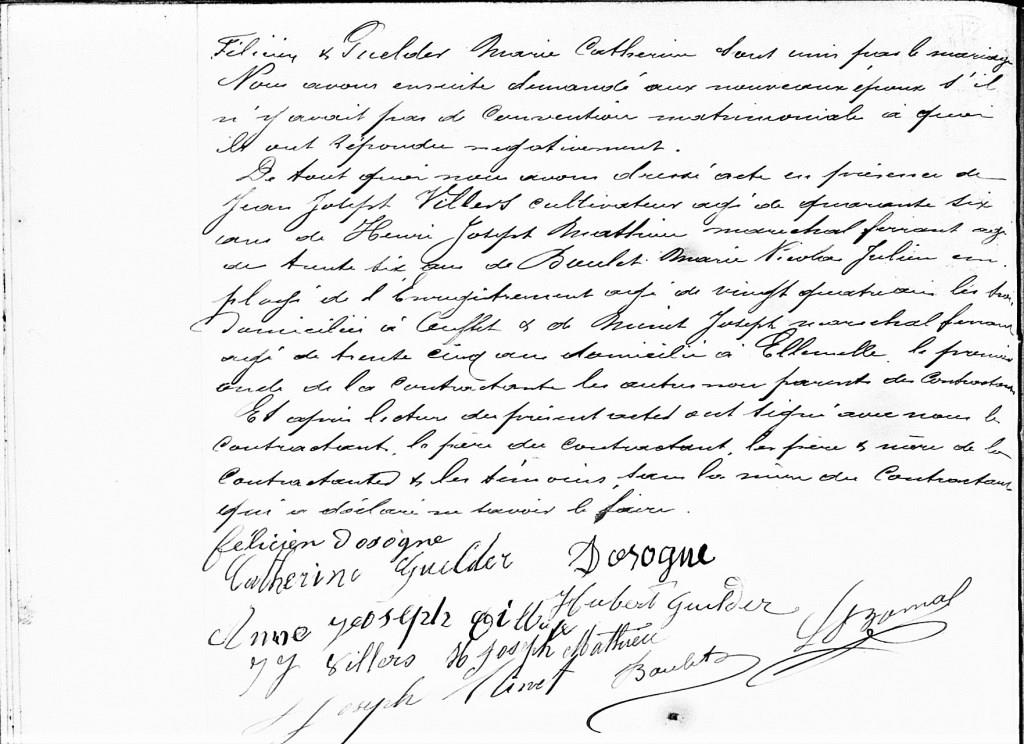 Félicien & Guelder Marie Catherine sont unis par le mariage
Nous avons ensuite demandé aux nouveaux époux s'il
n'y avait pas de convention matrimoniale à quoi
ils ont répondu négativement.
De tout quoi nous avons dressé acte en présence de
Jean Joseph Villers cultivateur agé de quarante six
ans de Henri Joseph Mathieu maréchal ferrant agé
de trente six ans de Boulet Marie Nicolas Julien em
ployé de l'Enregistrement agé de vingt quatre ans les trois
domiciliés à & de Minet Joseph marechal ferrant
agé de trente cinq ans domicilié à Ellemelle, le premier
oncle de la contractante les autres non parents des contractants
Et après lecture du présent acte ont signé avec nous le
contractant, le père du contractant, les père & mère de la
contractante & les témoins, sauf la mère du contractant
qui a déclaré ne savoir le faire.
félicien Dosogne
Catherine Guelder Dosogne
Anne Joseph Hubert Guelder
J J Villers H Joseph Mathieu
Joseph Minet Boulet